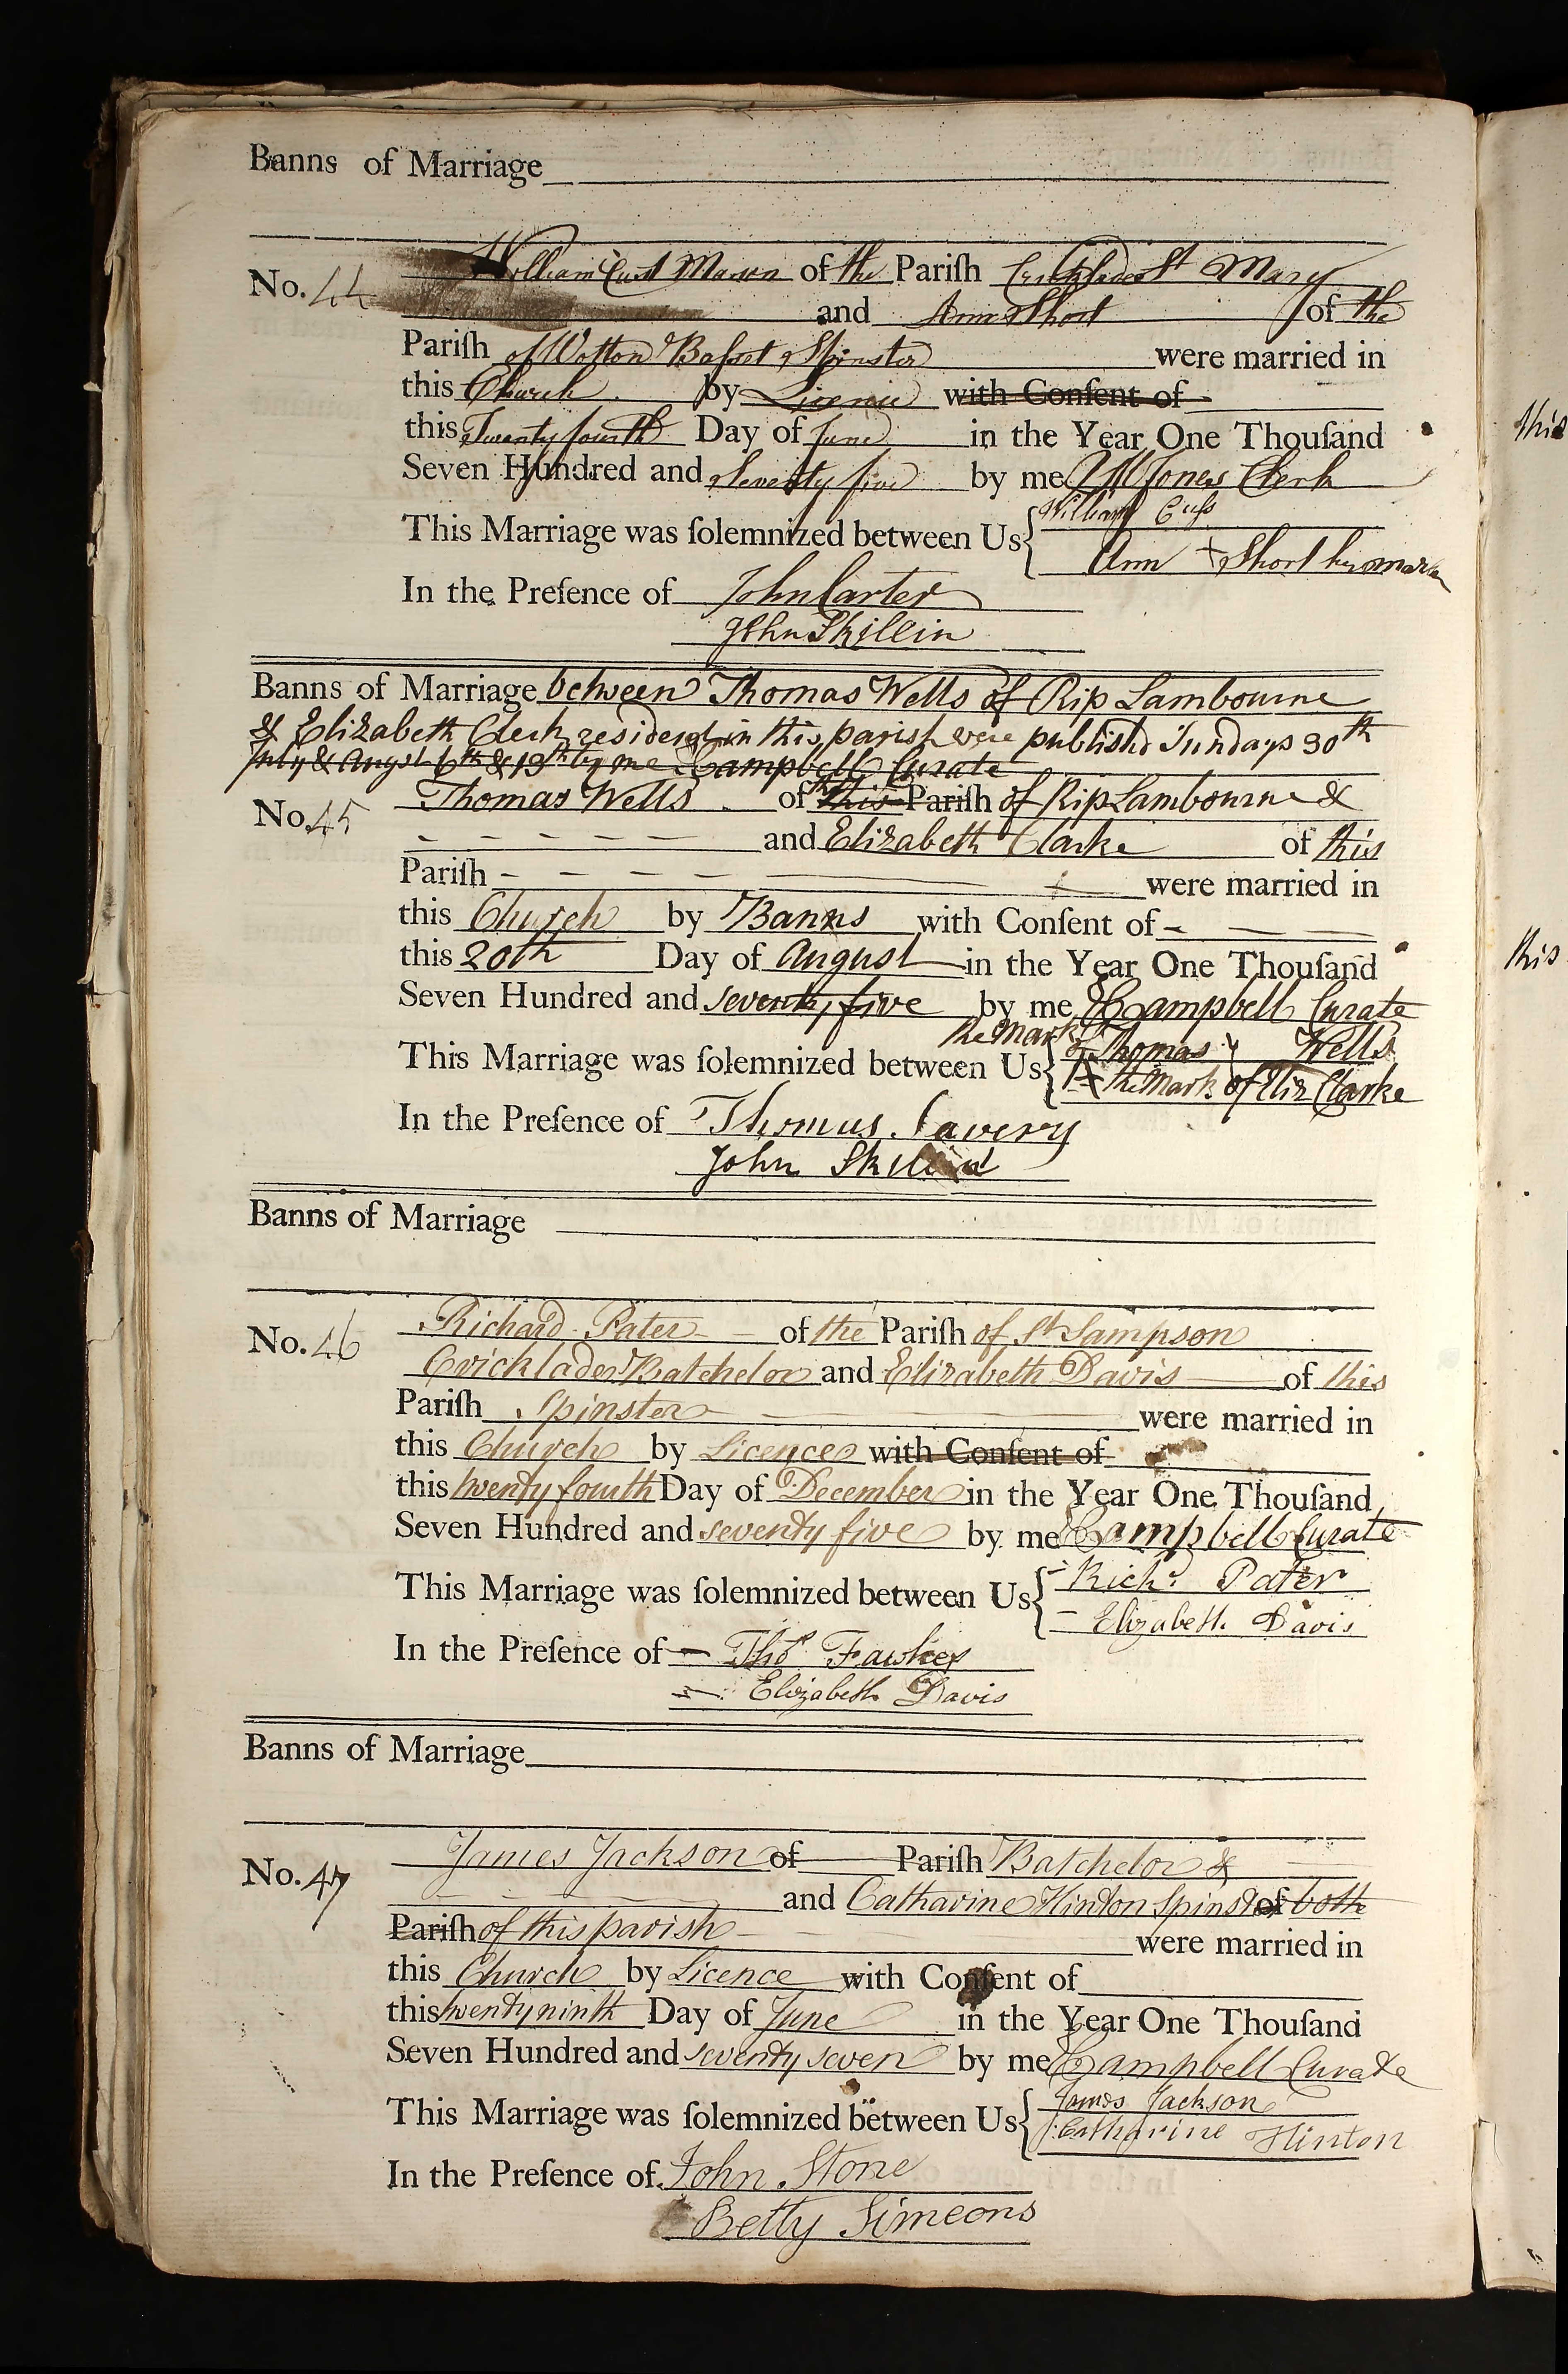 Banns of Marriage
No. 44 William Cuss Mason of the Parish Cricklade St Mary
and Ann Short of the
Parish of Wotton Basset Spinster were married in
this Church by Licence with Consent of
this Twenty fourth Day of June in the Year One Thousand
Seven Hundred and Seventy five by me Jones Clerk
This Marriage was solemnized between Us William Cuss
Ann + Short her mark
In the Presence of John Carter
John Skillin
Banns of Marriage between Thomas Wells of Rip Lambourne
& Elizabeth Clerk resident in this parish were published Sundays 30th
July & August 6th & 13th by me Campbell Curate
No. 45 Thomas Wells of the this Parish of Rip Lambourne &
and Elizabeth Clarke of this
Parish were married in
this Church by Banns with Consent of
this 20th Day of August in the Year One Thousand
Seven Hundred and seventy five by me Campbell Curate
the Mark of
This Marriage was solemnized between Us Thomas Wells
the Mark of Eliz Clarke
In the Presence of Thomas Savery
John Skillin
Banns of Marriage
No. 46 Richard Pater of the Parish of St Sampson
Cricklade Batchelor and Elizabeth Davis of this
Parish Spinster were married in
this Church by Licence with Consent of
this twenty fourth Day of December in the Year One Thousand
Seven Hundred and seventy five by me Campbell Curate
This Marriage was solemnized between Us Richd Pater
Elizabeth Davis
In the Presence of Thos Fawkes
Elizabeth Davis
Banns of Marriage
No. 47 James Jackson of Parish Batchelor &
and Catharine Hinton Spinster of both
Parish of this parish were married in
this Church by Licence with Consent of
this twenty ninth Day of June in the Year One Thousand
Seven Hundred and seventy seven by me Campbell Curate
This Marriage was solemnized between Us James Jackson
Catharine Hinton
In the Presence of John Stone
Betty Simeons
this
this